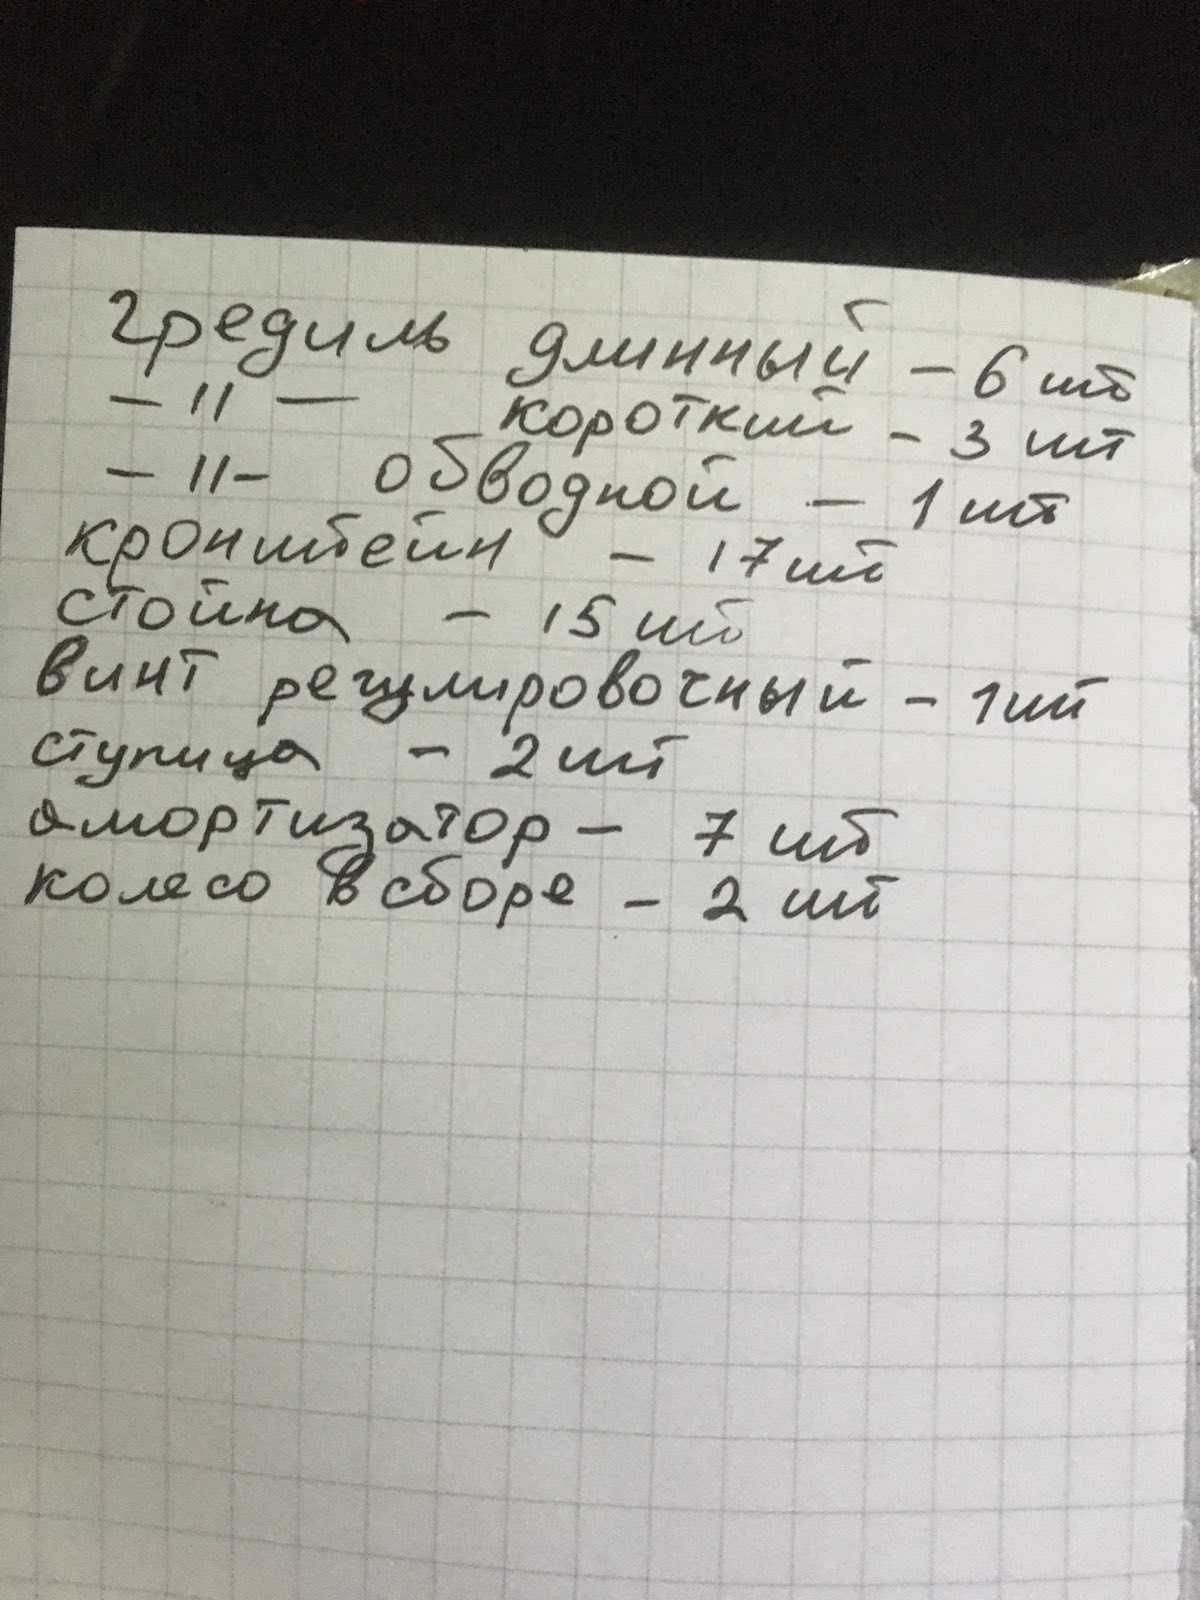 гредиль длинный - 6 шт
- 11 - короткий - 3 шт
- 11 - обводной - 1 шт
кронштейн - 17 шт
стойка - 15 шт
винт регулировочный - 1 шт
ступица - 2 шт
амортизатор - 7 шт
колесо в сборе - 2 шт